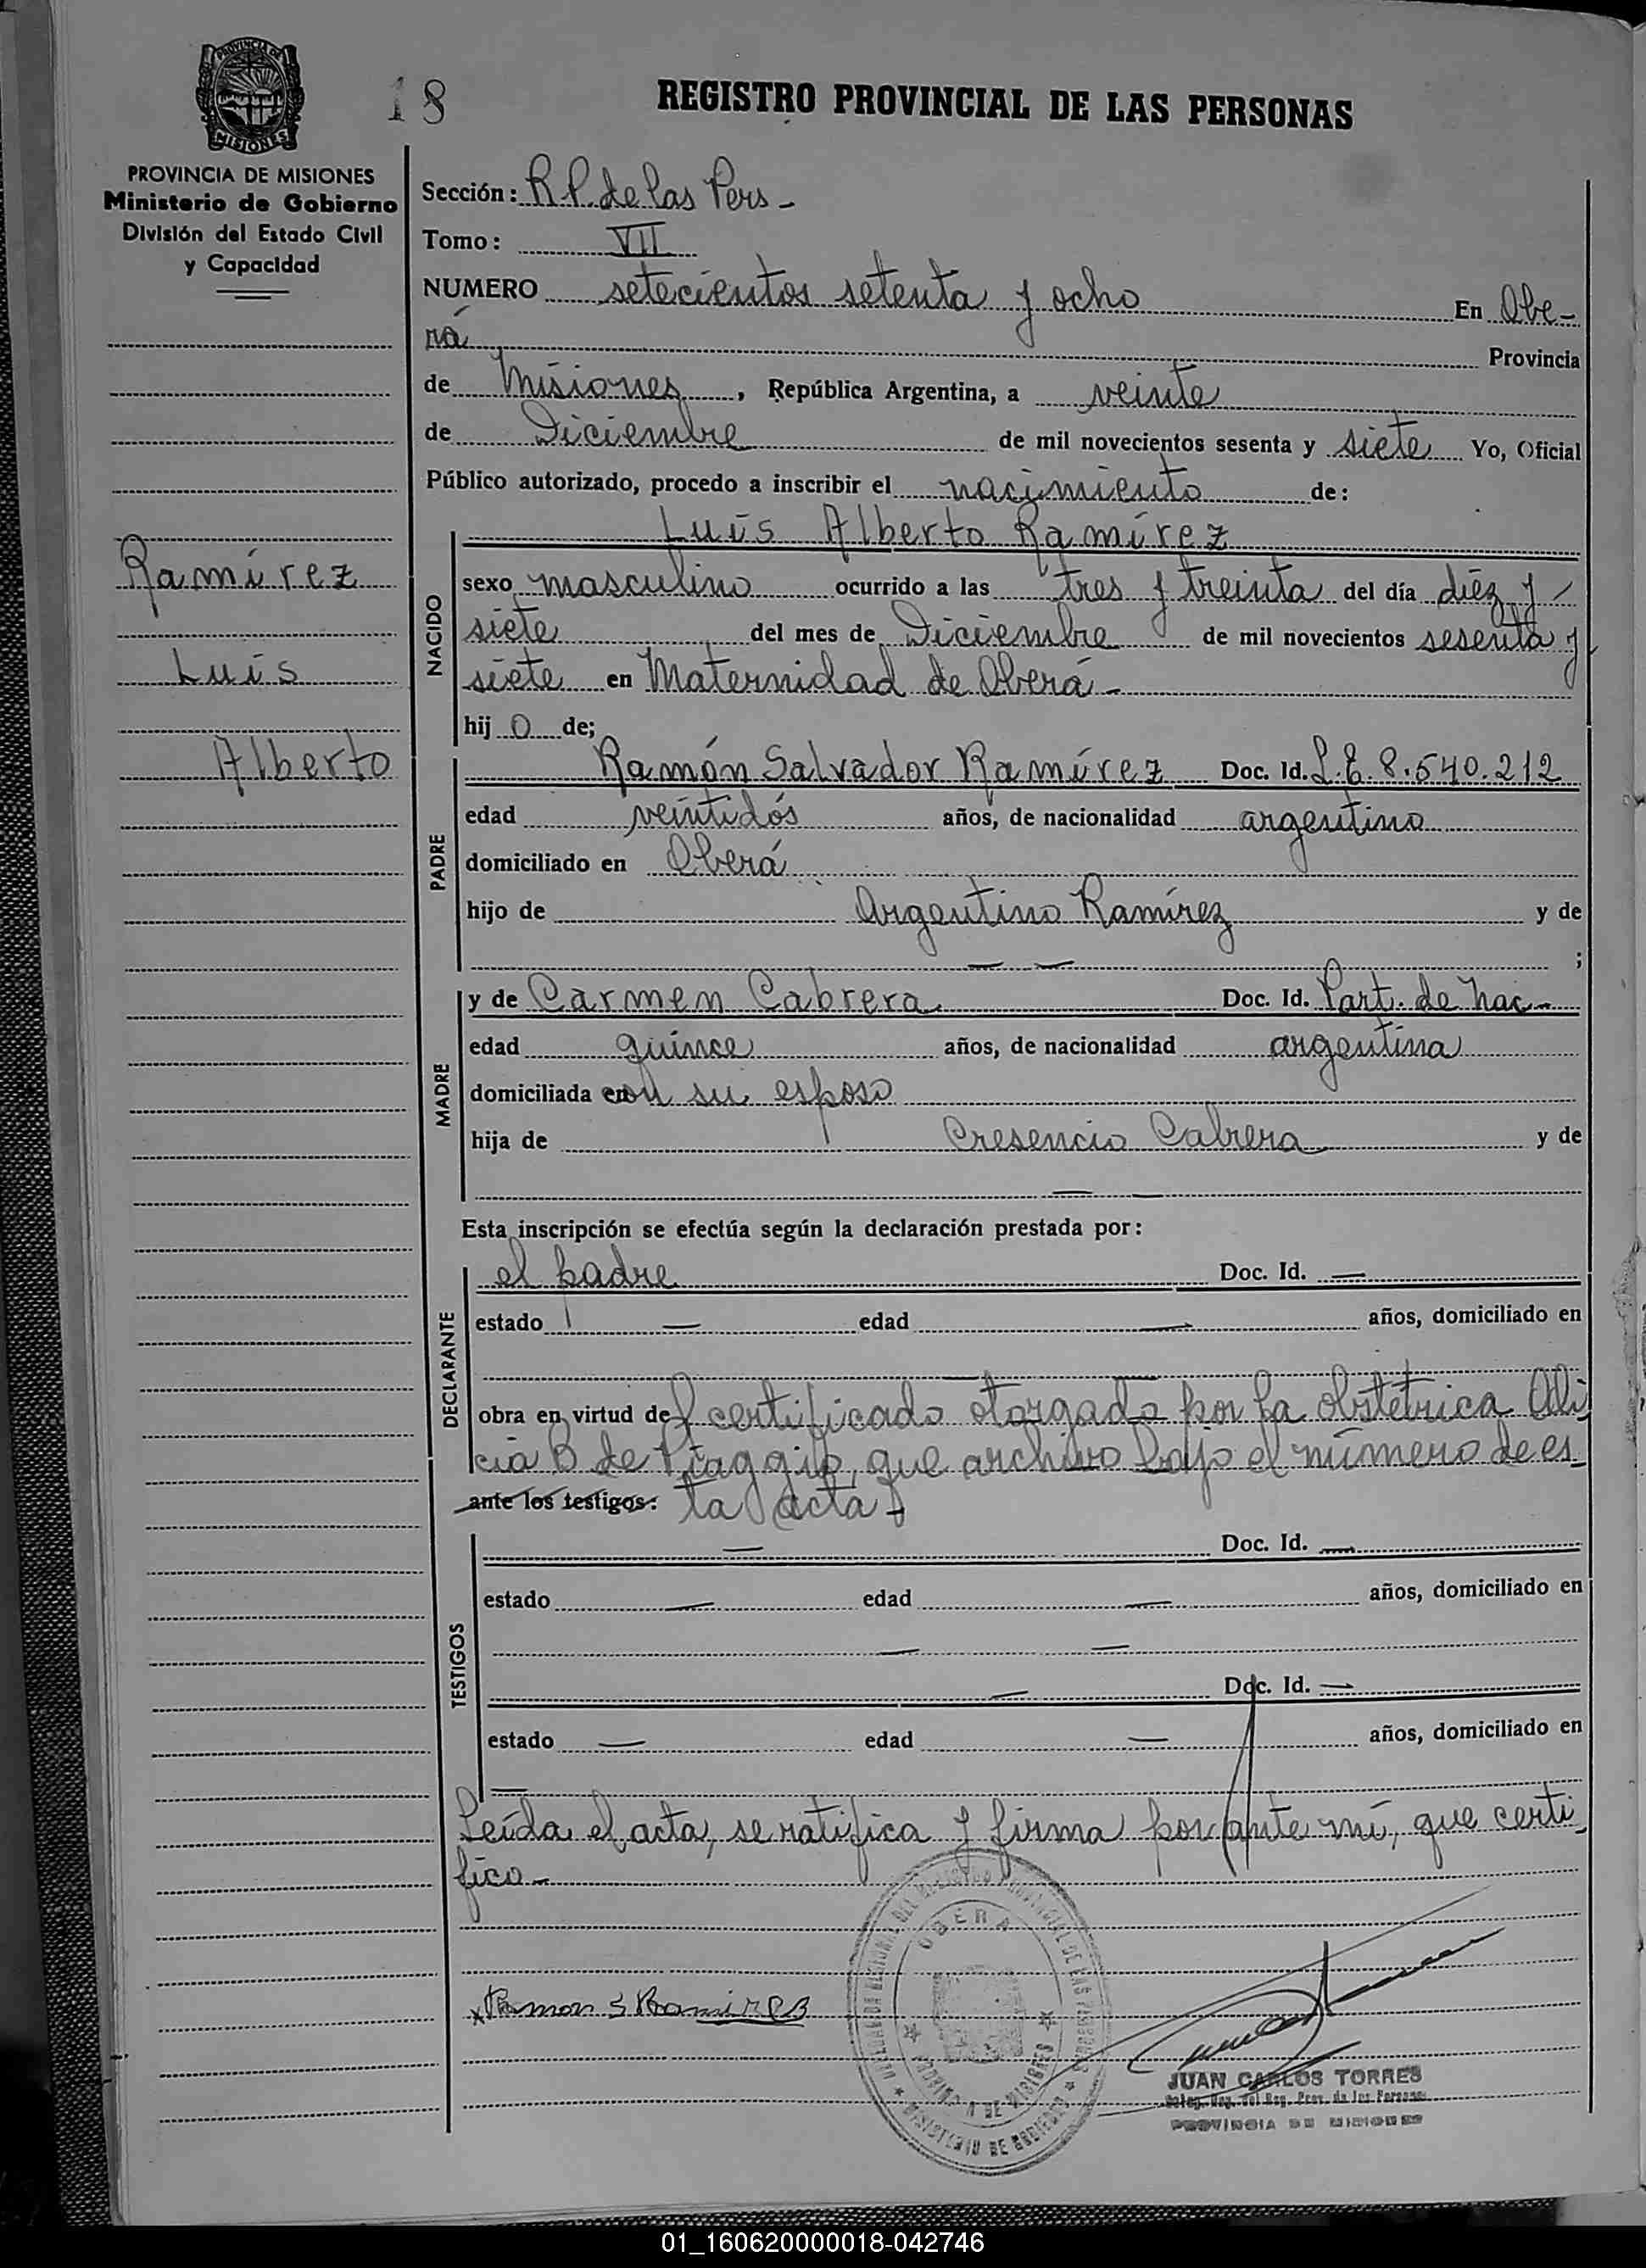 PROVINCIA DE
MISIONES
18
REGISTRO PROVINCIAL DE LAS PERSONAS
PROVINCIA DE MISIONES
Ministerio de Gobierno
División del Estado Civil
y Capacidad
Ramírez
Luis
Alberto
Sección: R.P. de las Pers -
Tomo: VII
NUMERO setecientos setenta y ocho En Obe-
rá Provincia
de Misiones, República Argentina, a veinte
de Diciembre de mil novecientos sesenta y siete Yo, Oficial
Público autorizado, procedo a inscribir el nacimiento de:
NACIDO
Luis Alberto Ramírez
sexo masculino ocurrido a las tres y treinta del día diez y
siete del mes de Diciembre de mil novecientos sesenta y
siete en Maternidad de Oberá -
hij o de;
PADRE
Ramón Salvador Ramírez Doc. Id. L.E. 8.540.212
edad veintidós años, de nacionalidad argentino
domiciliado en Oberá
hijo de Argentino Ramírez y de
— — ;
MADRE
y de Carmen Cabrera Doc. Id. Part. de nac -
edad quince años, de nacionalidad argentina
domiciliada con su esposo
hija de Cresencio Cabrera y de
— —
Esta inscripción se efectúa según la declaración prestada por:
DECLARANTE
el padre Doc. Id. —
estado — edad — años, domiciliado en
—
obra en virtud del certificado otorgado por la obstétrica Ali
cia B de Piaggio, que archivo bajo el número de es
ante los testigos: ta acta -
TESTIGOS
— Doc. Id. —
estado — edad — años, domiciliado en
— —
— Doc. Id. —
estado — edad — años, domiciliado en
—
Leída el acta, se ratifica y firma por ante mí, que certi
fico -
x Ramon S Ramirez
OBERA
PROVINCIA DE MISIONES
MINISTERIO DE GOBIERNO
JUAN CARLOS TORRES
Deleg. Reg. del Reg. Prov. de las Personas
PROVINCIA DE MISIONES
01_160620000018-042746